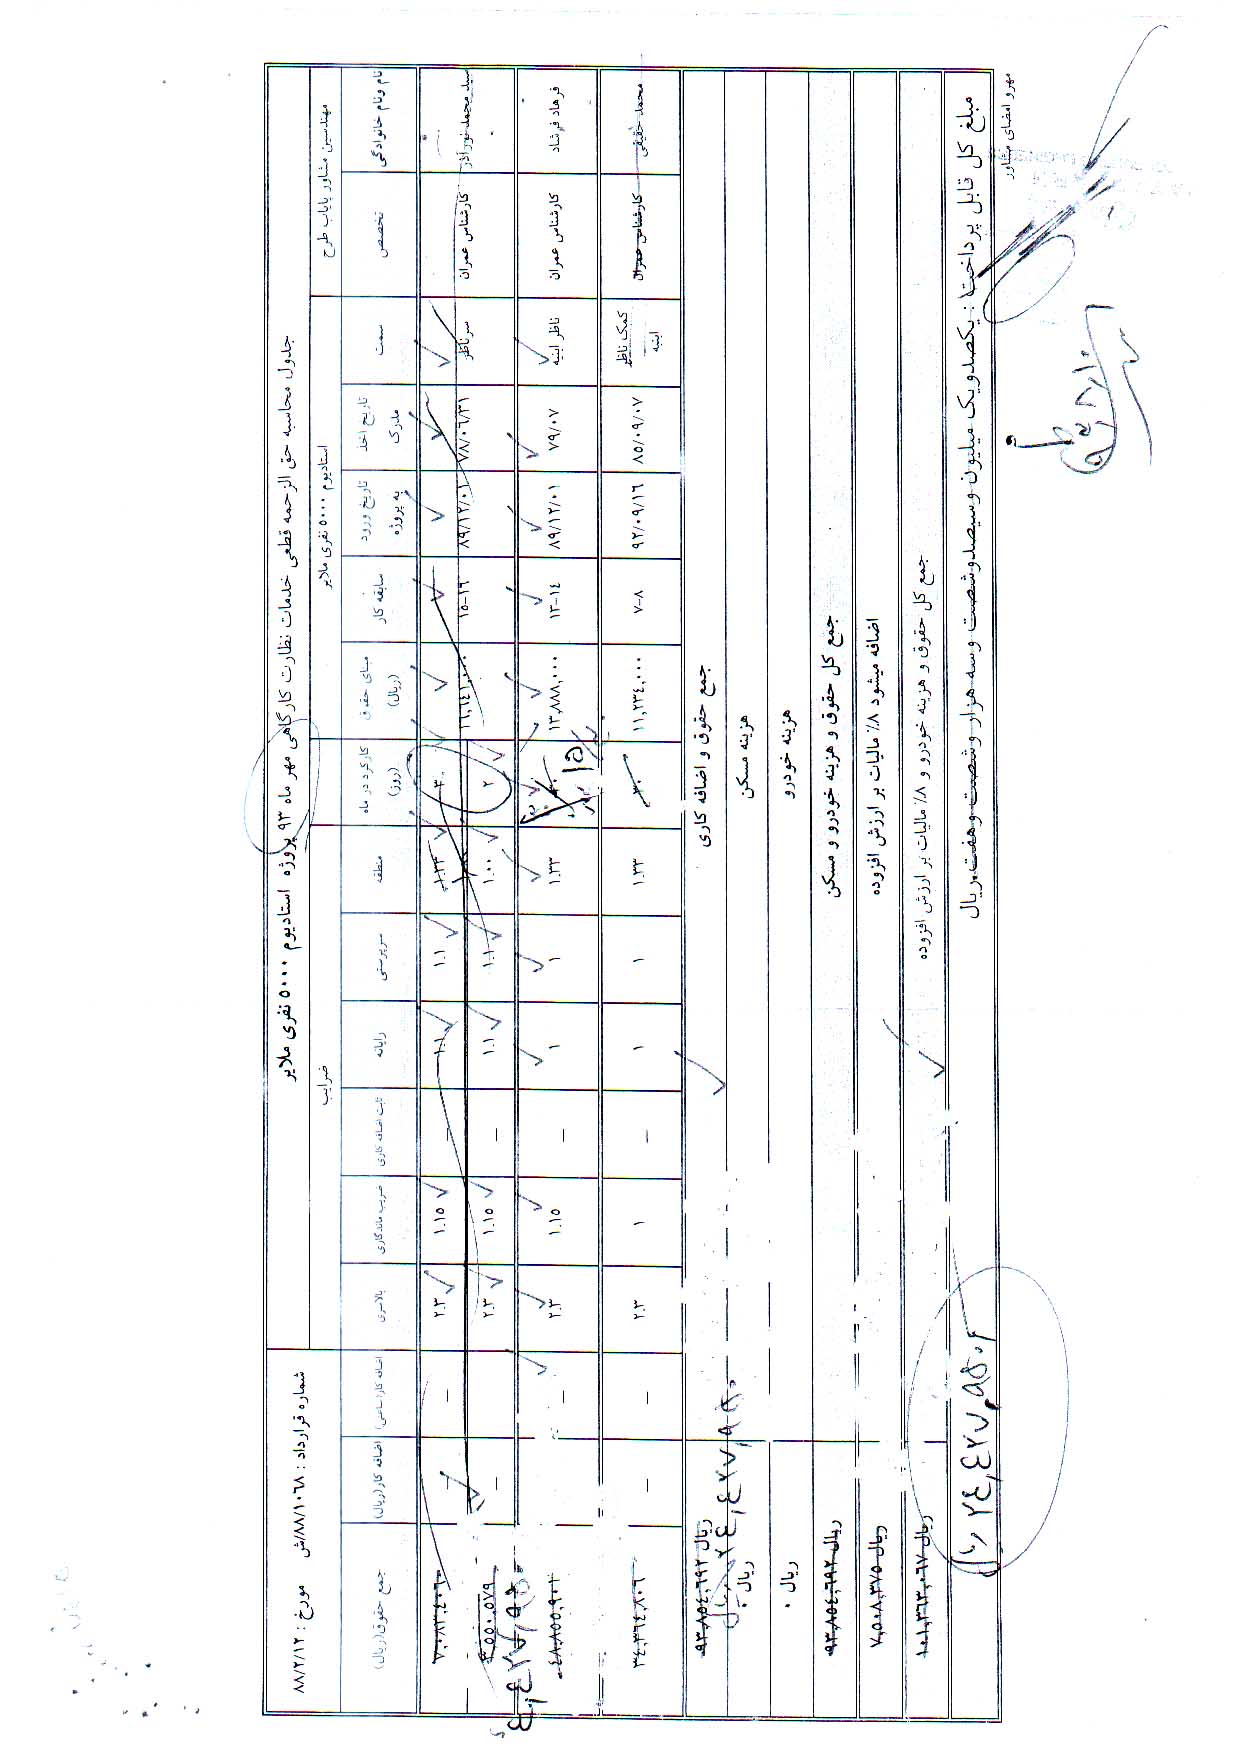 جدول محاسبه حق الزحمه قطعی خدمات نظارت کارگاهی مهر ماه ۹۳ پروژه استادیوم ۵۰۰۰ نفری ملایر
شماره قرارداد : ۸۸/۱۰۶۸/ش مورخ : ۸۸/۲/۱۲
مهندسین مشاور پایاب طرح
استادیوم ۵۰۰۰ نفری ملایر
ضرایب
نام ونام خانوادگی تخصص سمت تاریخ اخذ مدرک تاریخ ورود به پروژه سابقه کار مبنای حقوق (ریال) کارکرد در ماه (روز) منطقه سرپرستی رایانه ثابت اضافه کاری ضریب ماندگاری بالاسری اضافه کار(ساعتی) اضافه کار(ریال) جمع حقوق(ریال)
سید محمد نورآذر کارشناس عمران سر ناظر ۷۸/۰۶/۳۱ ۸۹/۱۲/۰۱ ۱۵-۱۶ ۱۶,۱۴۱,۰۰۰ ۱.۱ ۱.۱ – ۱.۱۵ ۲.۳ – – ۷,۰۸۳,۴۰۶
۲ ۱.۰۰ ۱.۱ ۱.۱ – ۱.۱۵ ۲.۳ – ۳,۵۵۰,۵۷۹
فرهاد فرشاد کارشناس عمران ناظر ابنیه ۷۹/۰۷ ۸۹/۱۲/۰۱ ۱۳-۱۴ ۱۳,۸۸۸,۰۰۰ ۱۵ ۱.۳۳ ۱ ۱ – ۱.۱۵ ۲.۳ – ۴۸,۸۵۵,۹۰۱
محمد حقیقی کارشناس عمران کمک ناظر ابنیه ۸۵/۰۹/۰۷ ۹۲/۰۹/۱۶ ۷-۸ ۱۱,۲۳۴,۰۰۰ ۳۰ ۱.۳۳ ۱ ۱ – ۱ ۲.۳ – – ۳۴,۳۶۴,۸۰۶
جمع حقوق و اضافه کاری ۹۳,۸۵۴,۶۹۲ ریال
هزینه مسکن ۰ ریال
هزینه خودرو ۰ ریال
جمع کل حقوق و هزینه خودرو و مسکن ۹۳,۸۵۴,۶۹۲ ریال
اضافه میشود ۸٪ مالیات بر ارزش افزوده ۷,۵۰۸,۳۷۵ ریال
جمع کل حقوق و هزینه خودرو و ۸٪ مالیات بر ارزش افزوده ۱۰۱,۳۶۳,۰۶۷ ریال
مبلغ کل قابل پرداخت : یکصدویک میلیون وسیصدوشصت وسه هزار وشصت وهفت ریال
مهر و امضای مشاور